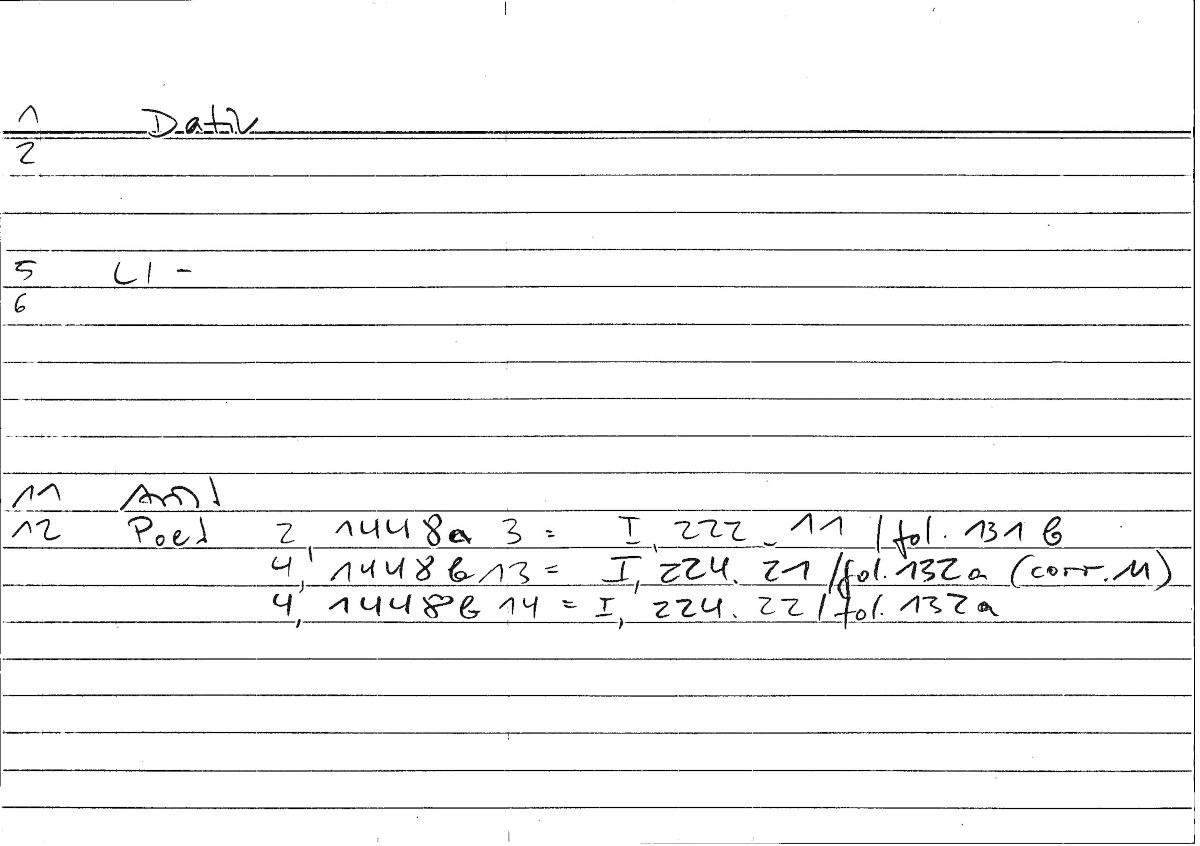 1 Dativ
2
5 li -
6
11 
12 Poet 2, 1448a 3 = I, 222. 11 / fol. 131 b
4, 1448b 13 = I, 224. 21 / fol. 132a (corr. M)
4, 1448b 14 = I, 224. 22 / fol. 132a